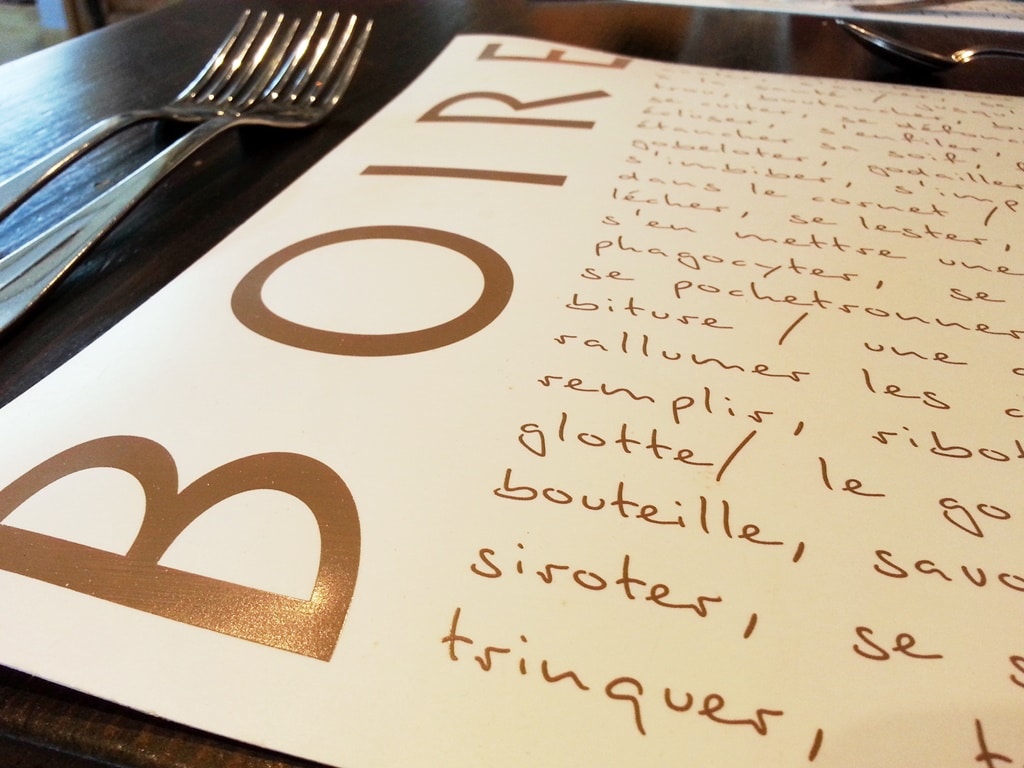 BOIRE
se cuiter, se
écluser, s'enfiler,
étancher sa soif,
gobeloter, godailler
s'imbiber, s'imp
dans le cornet /
lécher, se lester,
s'en mettre une
phagocyter, se
se pochetronner
biture / une
rallumer les
remplir, ribo
glotte/ le go
bouteille, savo
siroter, se s
trinquer, t